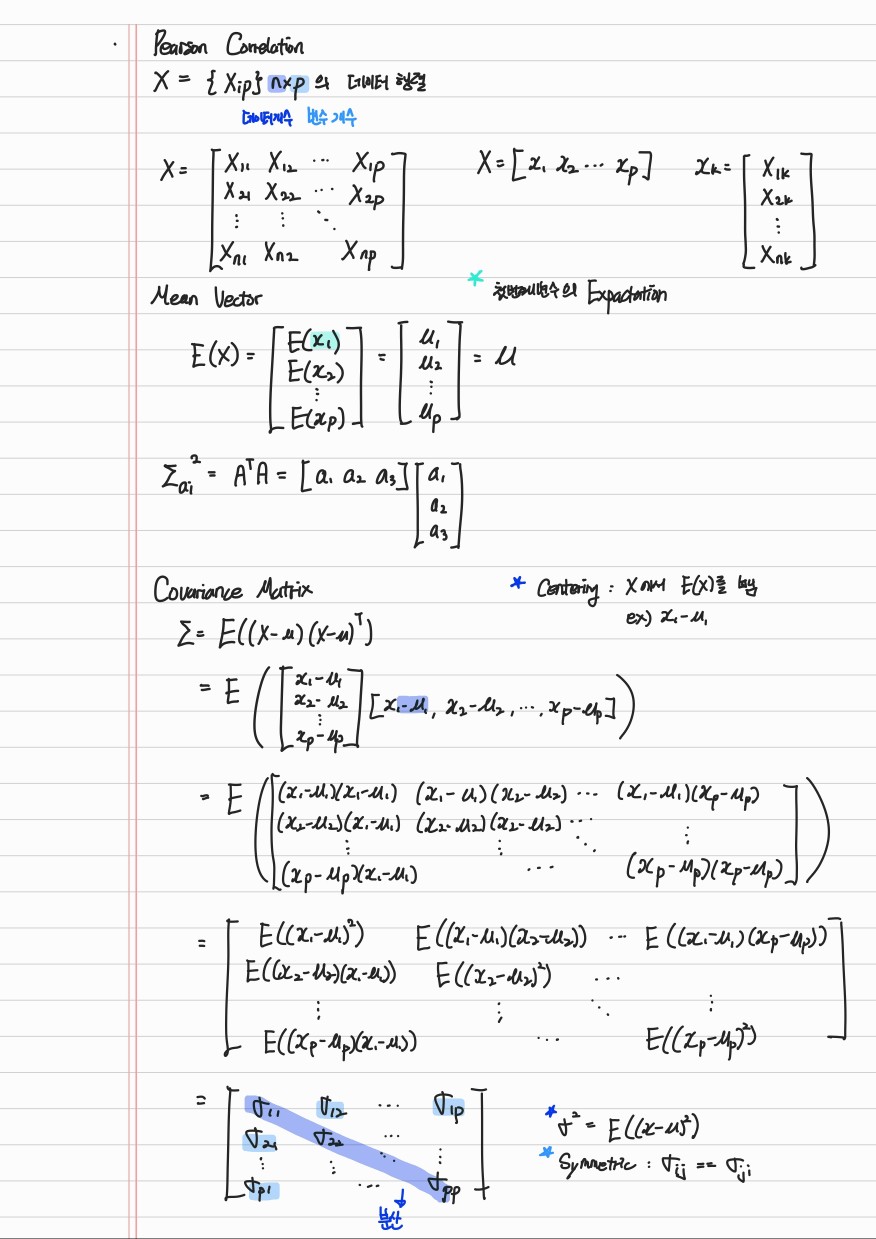 Pearson Correlation
X = { X_ip } n×p 의 데이터 행렬
데이터개수 변수 개수
X = [ X_11 X_12 ⋯ X_1p
X_21 X_22 ⋯ X_2p
⋮ ⋮ ⋱
X_n1 X_n2 X_np ]
X = [ x_1 x_2 ⋯ x_p ]
x_k = [ X_1k
X_2k
⋮
X_nk ]
Mean Vector
* 첫번째변수의 Expactation
E(X) = [ E(x_1)
E(x_2)
⋮
E(x_p) ] = [ μ_1
μ_2
⋮
μ_p ] = μ
Σ_ai^2 = A^T A = [ a_1 a_2 a_3 ] [ a_1
a_2
a_3 ]
Covariance Matrix
* Centering : X에서 E(X)를 뺌
ex) x_1-μ_1
Σ = E((X-μ)(X-μ)^T)
= E ( [ x_1-μ_1
x_2-μ_2
⋮
x_p-μ_p ] [ x_1-μ_1, x_2-μ_2, ⋯, x_p-μ_p ] )
= E ( [ (x_1-μ_1)(x_1-μ_1) (x_1-μ_1)(x_2-μ_2) ⋯ (x_1-μ_1)(x_p-μ_p)
(x_2-μ_2)(x_1-μ_1) (x_2-μ_2)(x_2-μ_2) ⋯
⋮ ⋮ ⋱ ⋮
(x_p-μ_p)(x_1-μ_1) ⋯ (x_p-μ_p)(x_p-μ_p) ] )
= [ E((x_1-μ_1)^2) E((x_1-μ_1)(x_2-μ_2)) ⋯ E((x_1-μ_1)(x_p-μ_p))
E((x_2-μ_2)(x_1-μ_1)) E((x_2-μ_2)^2) ⋯
⋮ ⋮ ⋱ ⋮
E((x_p-μ_p)(x_1-μ_1)) ⋯ E((x_p-μ_p)^2) ]
= [ σ_11 σ_12 ⋯ σ_1p
σ_21 σ_22 ⋯
⋮ ⋮ ⋱ ⋮
σ_p1 ⋯ σ_pp ]
분산
* σ^2 = E((x-μ)^2)
* Symmetric : σ_ij == σ_ji